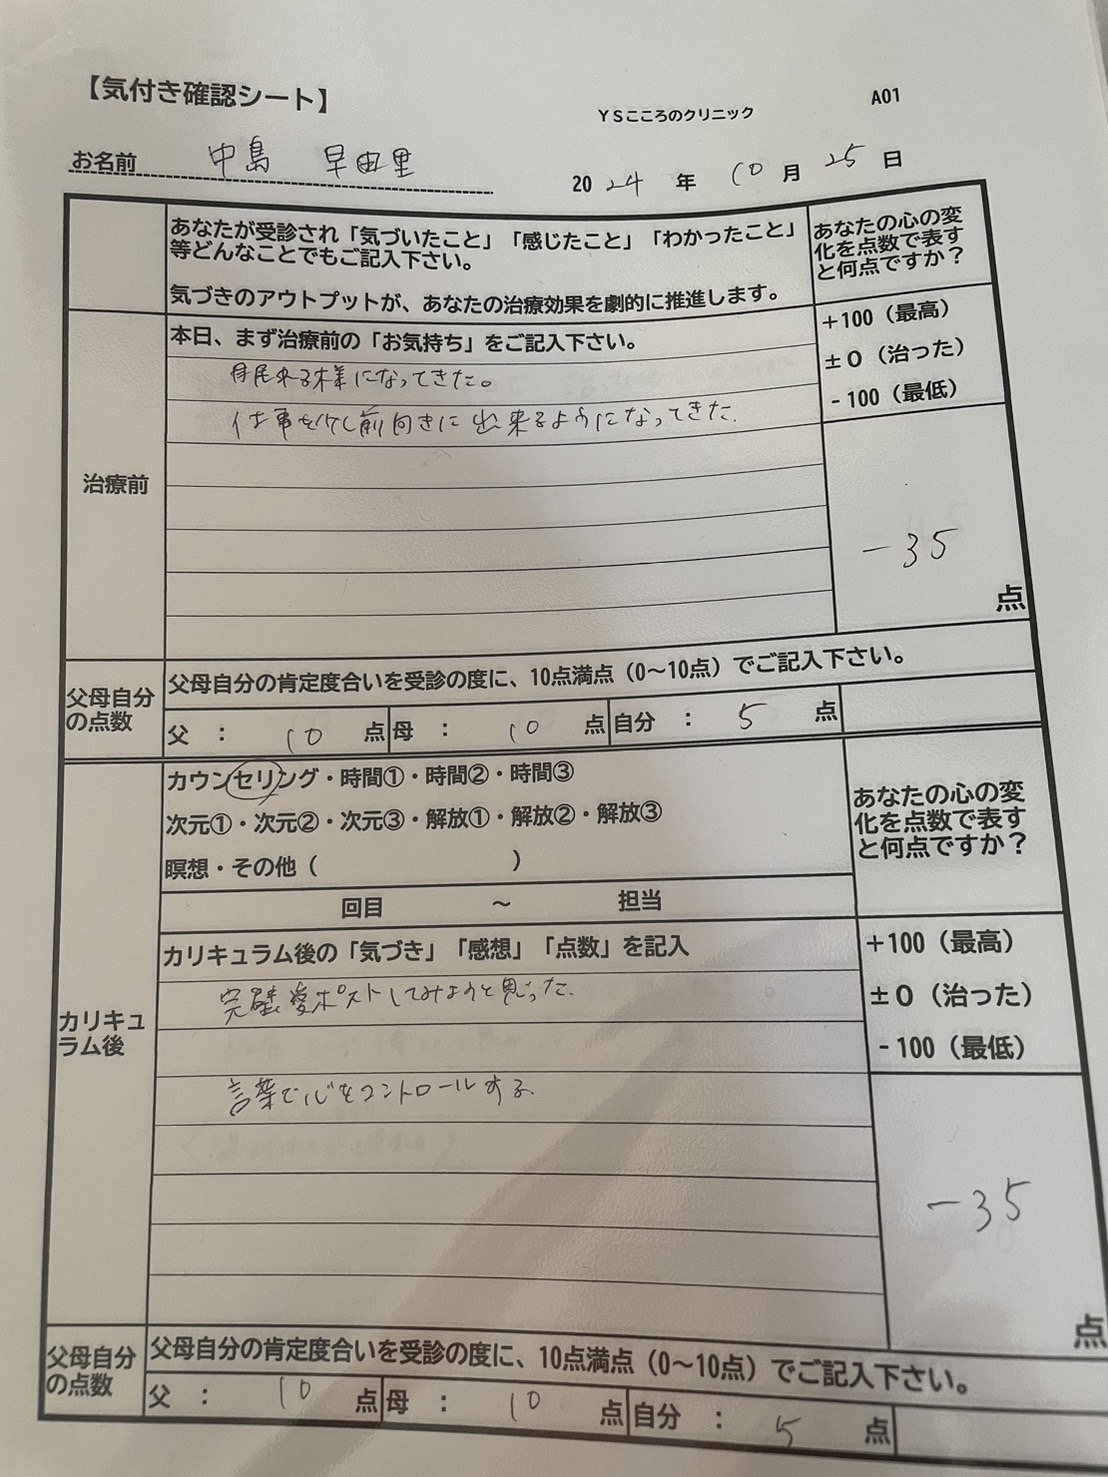 【気付き確認シート】
YSこころのクリニック
A01
お名前 中島 早由里
2024年 10月 25日
あなたが受診され「気づいたこと」「感じたこと」「わかったこと」
等どんなことでもご記入下さい。
気づきのアウトプットが、あなたの治療効果を劇的に推進します。
あなたの心の変
化を点数で表す
と何点ですか？
治療前
本日、まず治療前の「お気持ち」をご記入下さい。
来る様になってきた。
仕事を少し前向きに出来るようになってきた.
+100（最高）
±0（治った）
-100（最低）
-35
点
父母自分
の点数
父母自分の肯定度合いを受診の度に、10点満点（0～10点）でご記入下さい。
父 ： 10 点 母 ： 10 点 自分 ： 5 点
カリキュ
ラム後
カウンセリング・時間①・時間②・時間③
次元①・次元②・次元③・解放①・解放②・解放③
瞑想・その他（ ）
回目 ～ 担当
あなたの心の変
化を点数で表す
と何点ですか？
カリキュラム後の「気づき」「感想」「点数」を記入
完璧愛ポストしてみようと思った.
言葉で心をコントロールする.
+100（最高）
±0（治った）
-100（最低）
-35
点
父母自分
の点数
父母自分の肯定度合いを受診の度に、10点満点（0～10点）でご記入下さい。
父 ： 10 点 母 ： 10 点 自分 ： 5 点